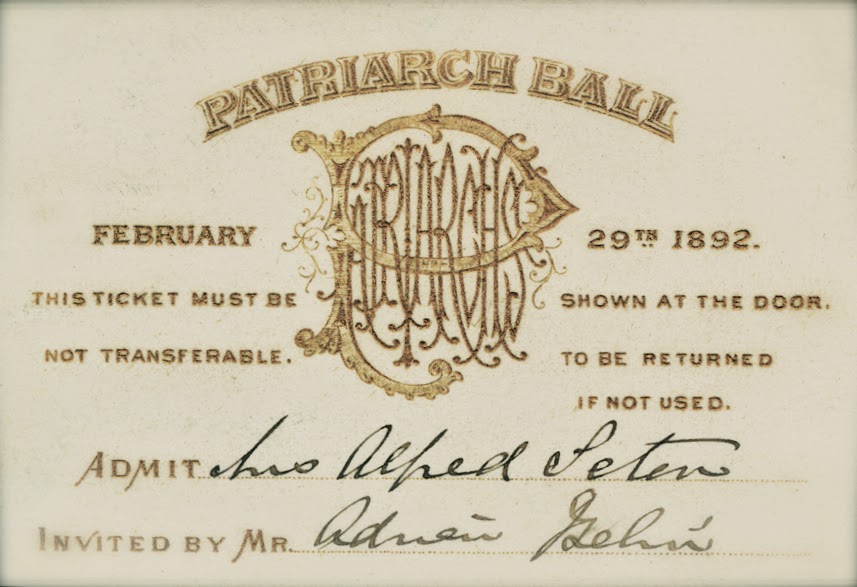 PATRIARCH BALL
PATRIARCHS
FEBRUARY 29TH 1892.
THIS TICKET MUST BE SHOWN AT THE DOOR.
NOT TRANSFERABLE. TO BE RETURNED
IF NOT USED.
ADMIT Mrs Alfred Seton
INVITED BY MR. Adrian